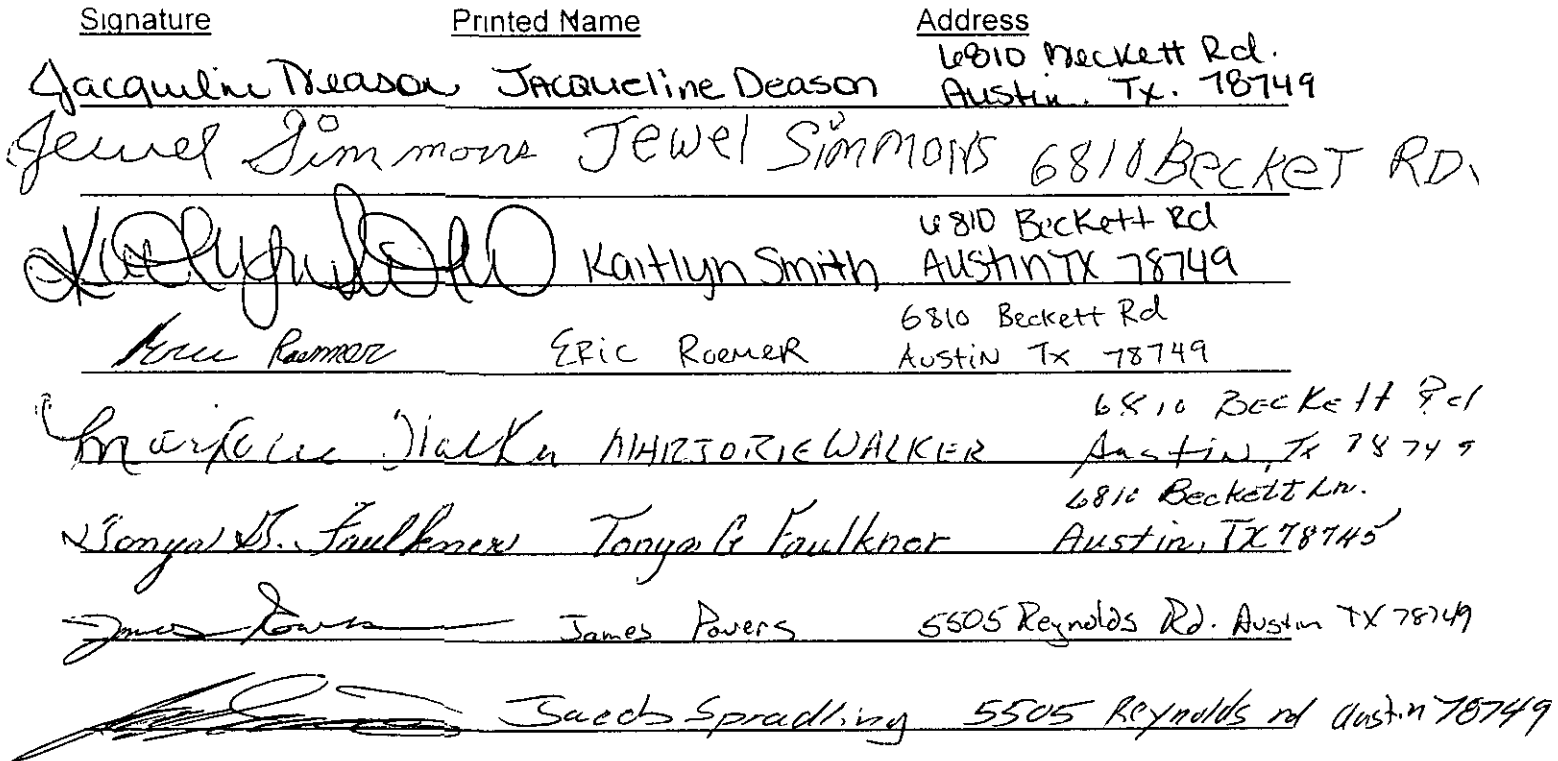 Signature Printed Name Address
Jacqueline Deason Jacqueline Deason 6810 Beckett Rd.
Austin. Tx. 78749
Jewel Simmons Jewel Simmons 6810 Becket RD.
Kaitlyn Smith 6810 Beckett Rd
Austin TX 78749
Eric Roemer Eric Roemer 6810 Beckett Rd
Austin Tx 78749
Marjorie Walker MARJORIE WALKER 6810 Beckett Rd
Austin, Tx 78749
Tonya G. Faulkner Tonya G Faulkner 6810 Beckett Ln.
Austin, TX 78745
James Powers James Powers 5505 Reynolds Rd. Austin TX 78749
Jacob Spradling 5505 Reynolds rd Austin 78749